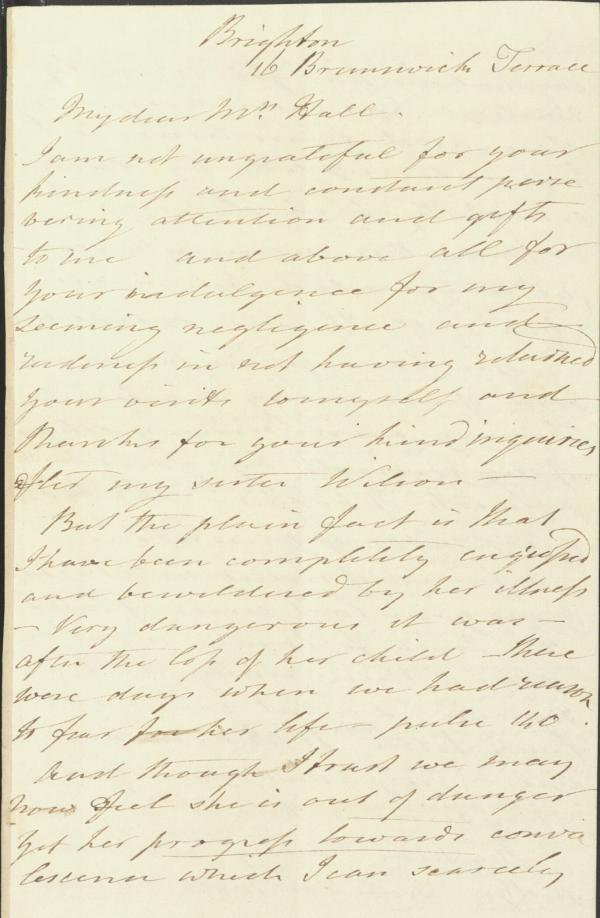 Brighton
16 Brunswick Terrace
My dear Mrs Hall.
I am not ungrateful for your
kindness and constant perse
vering attention and gifts
to me and above all for
your indulgence for my
seeming negligence and
rudeness in not having returned
your visits to myself and
thanks for your kind inquiries
after my sister Wilson —
But the plain fact is that
I have been completely engrossed
and bewildered by her illness
— Very dangerous it was —
after the loss of her child There
were days when we had reason
to fear for her life — pulse 140.
And though I trust we may
now feel she is out of danger
yet her progress towards conva
lescence which I can scarcely